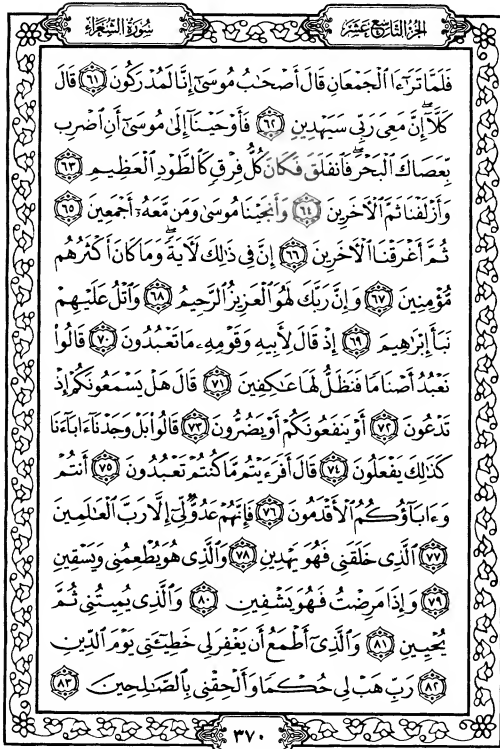 الجزء التاسع عشر
سورة الشعراء
فَلَمَّا تَرَٰٓءَا ٱلۡجَمۡعَانِ قَالَ أَصۡحَٰبُ مُوسَىٰٓ إِنَّا لَمُدۡرَكُونَ ٦١ قَالَ
كَلَّآۖ إِنَّ مَعِيَ رَبِّي سَيَهۡدِينِ ٦٢ فَأَوۡحَيۡنَآ إِلَىٰ مُوسَىٰٓ أَنِ ٱضۡرِب
بِّعَصَاكَ ٱلۡبَحۡرَۖ فَٱنفَلَقَ فَكَانَ كُلُّ فِرۡقٖ كَٱلطَّوۡدِ ٱلۡعَظِيمِ ٦٣
وَأَزۡلَفۡنَا ثَمَّ ٱلۡأٓخَرِينَ ٦٤ وَأَنجَيۡنَا مُوسَىٰ وَمَن مَّعَهُۥٓ أَجۡمَعِينَ ٦٥
ثُمَّ أَغۡرَقۡنَا ٱلۡأٓخَرِينَ ٦٦ إِنَّ فِي ذَٰلِكَ لَأٓيَةٗۖ وَمَا كَانَ أَكۡثَرُهُم
مُّؤۡمِنِينَ ٦٧ وَإِنَّ رَبَّكَ لَهُوَ ٱلۡعَزِيزُ ٱلرَّحِيمُ ٦٨ وَٱتۡلُ عَلَيۡهِمۡ
نَبَأَ إِبۡرَٰهِيمَ ٦٩ إِذۡ قَالَ لِأَبِيهِ وَقَوۡمِهِۦ مَا تَعۡبُدُونَ ٧٠ قَالُواْ
نَعۡبُدُ أَصۡنَامٗا فَنَظَلُّ لَهَا عَٰكِفِينَ ٧١ قَالَ هَلۡ يَسۡمَعُونَكُمۡ إِذۡ
تَدۡعُونَ ٧٢ أَوۡ يَنفَعُونَكُمۡ أَوۡ يَضُرُّونَ ٧٣ قَالُواْ بَلۡ وَجَدۡنَآ ءَابَآءَنَا
كَذَٰلِكَ يَفۡعَلُونَ ٧٤ قَالَ أَفَرَءَيۡتُم مَّا كُنتُمۡ تَعۡبُدُونَ ٧٥ أَنتُمۡ
وَءَابَآؤُكُمُ ٱلۡأَقۡدَمُونَ ٧٦ فَإِنَّهُمۡ عَدُوّٞ لِّيٓ إِلَّا رَبَّ ٱلۡعَٰلَمِينَ
٧٧ ٱلَّذِي خَلَقَنِي فَهُوَ يَهۡدِينِ ٧٨ وَٱلَّذِي هُوَ يُطۡعِمُنِي وَيَسۡقِينِ
٧٩ وَإِذَا مَرِضۡتُ فَهُوَ يَشۡفِينِ ٨٠ وَٱلَّذِي يُمِيتُنِي ثُمَّ
يُحۡيِينِ ٨١ وَٱلَّذِيٓ أَطۡمَعُ أَن يَغۡفِرَ لِي خَطِيٓـَٔتِي يَوۡمَ ٱلدِّينِ
٨٢ رَبِّ هَبۡ لِي حُكۡمٗا وَأَلۡحِقۡنِي بِٱلصَّٰلِحِينَ ٨٣
٣٧٠